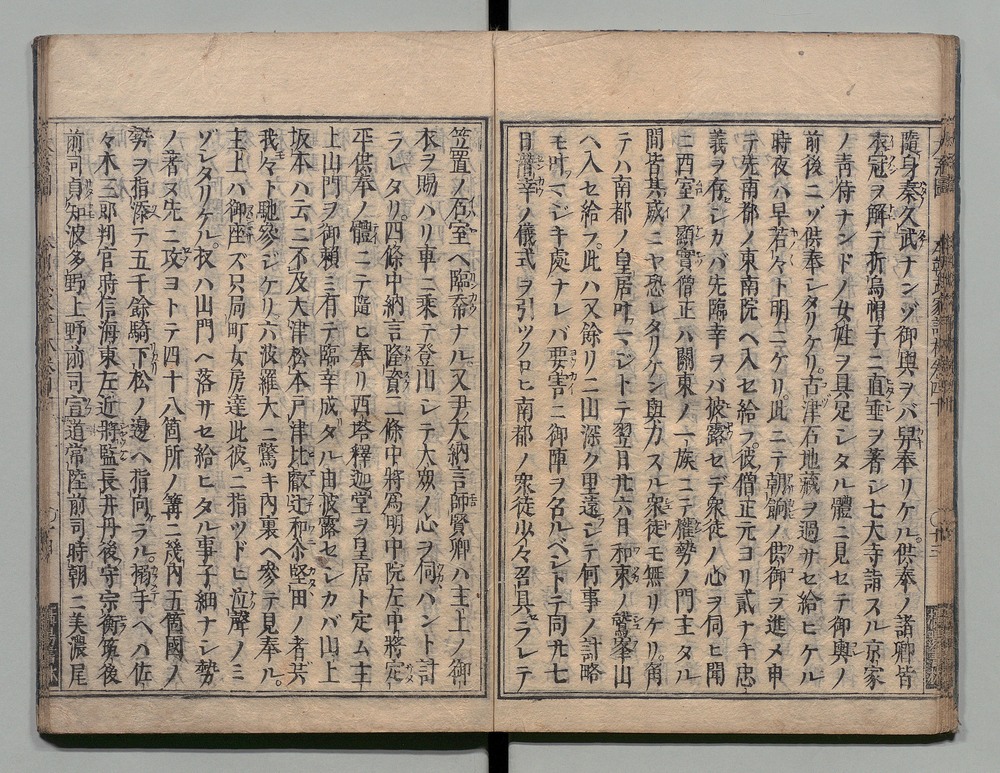 隨身秦久武ナンゾ御輿ヲバ舁奉リケル。供奉ノ諸卿皆
衣冠ヲ解テ折烏帽子ニ直垂ヲ著シ七大寺詣スル京家
ノ靑侍ナンドノ女姓ヲ具足シタル體ニ見セテ御輿ノ
前後ニゾ供奉シタリケリ。古津石地藏ヲ過サセ給ヒケル
時夜ハ早若々ト明ニケリ。此ニテ朝餉ノ供御ヲ進メ申
テ先南都ノ東南院ヘ入セ給フ。彼僧正元ヨリ貳ナキ忠
義ヲ存シカバ先臨幸ヲバ披露セデ衆徒ノ心ヲ伺ヒ聞
ニ西室ノ顯實僧正ハ關東ノ一族ニテ權勢ノ門主タル
間皆其威ニヤ恐レタリケン與力スル衆徒モ無リケリ。角
テハ南都ノ皇居叶マジトテ翌日廿六日和束ノ鷲峯山
ヘ入セ給フ。此ハ又餘リニ山深ク里遠シテ何事ノ計略
モ叶マジキ處ナレバ要害ニ御陣ヲ召ルベシトテ同廿七
日潛幸ノ儀式ヲ引ツクロヒ南都ノ衆徒少々召具ラレテ
笠置ノ石室ヘ臨幸ナル又尹大納言師賢卿ハ主上ノ御
衣ヲ賜ハリ車ニ乘テ登山シテ大衆ノ心ヲ伺ハント計
ラレタリ。四條中納言隆資二條中將爲明中院左中將定
平供奉ノ體ニテ隨ヒ奉リ西塔釋迦堂ヲ皇居ト定ム主
上山門ヲ御賴ミ有テ臨幸成タル由披露セシカバ山上
坂本ハ云ニ不及大津松本戸津比叡辻和尒堅田ノ者共
我モ々ト馳參ジケリ。六波羅大ニ驚キ內裏ヘ參テ見奉ル。
主上ハ御座ズ只局町女房達此彼ニ指ツドヒ泣聲ノミ
ゾシタリケル。扨ハ山門ヘ落サセ給ヒタル事子細ナシ勢
ノ著ヌ先ニ攻ヨトテ四十八箇所ノ篝ニ幾內五箇國ノ
勢ヲ指添テ五千餘騎下松ノ邊ヘ指向ラル搦手ヘハ佐
々木三郎判官時信海東左近將監長井丹後守宗衡筑後
前司貞知波多野上野前司宣道常陸前司時朝ニ美濃尾